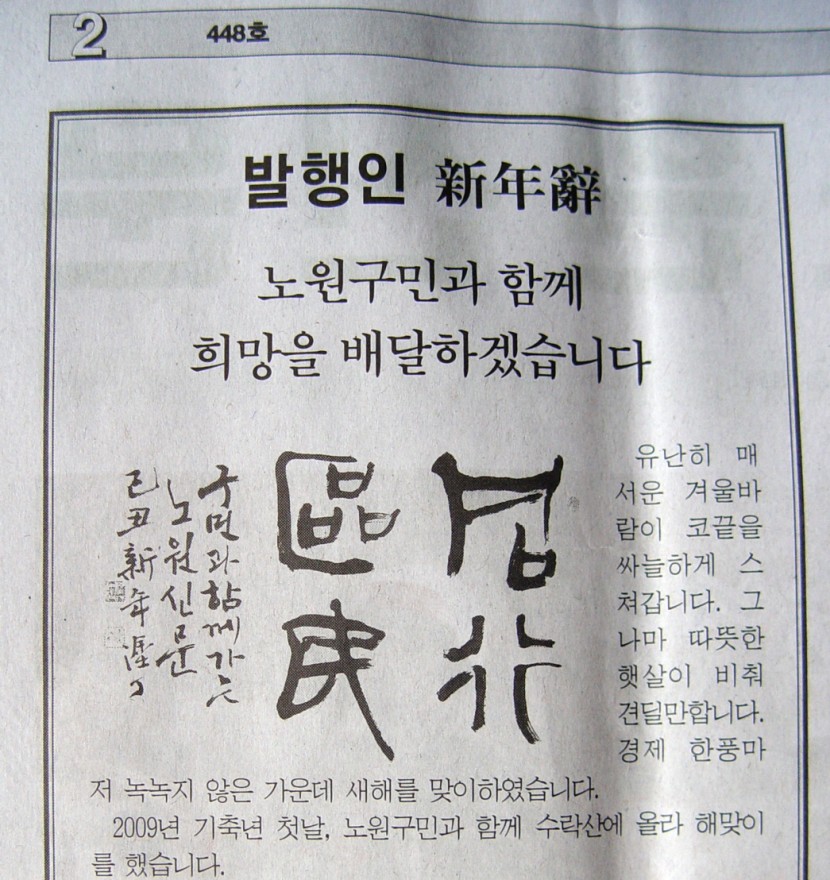 2
448호
발행인 新年辭
노원구민과 함께
희망을 배달하겠습니다
行
區民
구민과함께가는
노원신문
己丑新年
유난히 매
서운 겨울바
람이 코끝을
싸늘하게 스
쳐갑니다. 그
나마 따뜻한
햇살이 비춰
견딜만합니다.
경제 한풍마
저 녹녹지 않은 가운데 새해를 맞이하였습니다.
2009년 기축년 첫날, 노원구민과 함께 수락산에 올라 해맞이
를 했습니다.